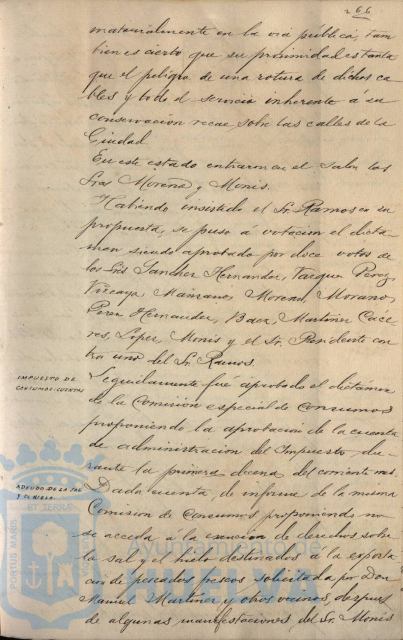 266
materialmente en la via pública, tam
bien es cierto que su proximidad es tanta
que el peligro de una rotura de dichos ca
bles y todo el servicio inherente á su
conservación recae sobre las calles de la
Ciudad
En este estado entraron en el Salon los
Sres Moreno y Monis.
Habiendo insistido el Sr. Ramos en su
propuesta, se puso á votacion el dicta-
men siendo aprobado por doce votos de
los Sres Sanchez Hernandez, Vazquez Perez,
Vizcaya, Manzano, Moreno, Morano,
Perez Hernandez, Baez, Martinez Cáce
res, Lopez, Monis y el Sr. Presidente con
tra uno del Sr. Ramos.
IMPUESTO DE
CONSUMOS: CUENTAS
Seguidamente fué aprobado el dictámen
de la Comisión especial de Consumos
proponiendo la aprobacion de la cuenta
de administracion del Impuesto, du-
rante la primera decena del corriente mes.
ADEUDO DE LA SAL
Y EL HIELO
Dada cuenta, de informe de la misma
Comision de Consumos proponiendo no
se acceda a la exencion de derechos sobre
la sal y el hielo destinados á la exporta
cion de pescados frescos solicitada por Don
Manuel Martinez y otros vecinos, despues
de algunas manifestaciones del Sr. Monis
PORTUS MARIS
ET TERRAE
Ayuntamiento de